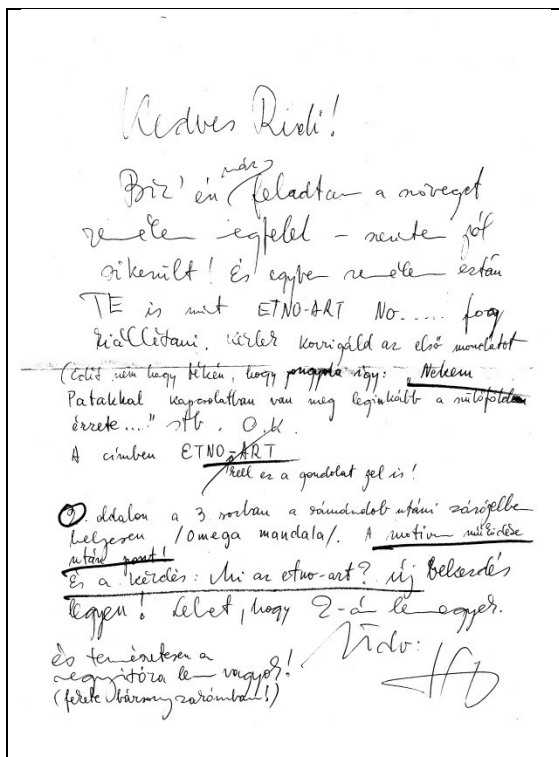 Kedves Rudi!
Biz' én már feladtam a szöveget
remélem egfelel – szerintem jól
sikerült! És egyben remélem eztán
TE is mint ETNO-ART No..... fogy
kiállítani. Kérlek korrigáld az első mondatot
(Edit nem hagy békén, hogy pongyola így: "Nekem
Patakkal kapcsolatban van meg leginkább a szülőföldem
érzete...." stb. O.K.
A címben ETNO-ART
kell ez a gondolatjel is!
2. oldalon a 3. sorban a sámándob utáni zárójelben
helyesen /Omega mandala/. A motivum működése
után pont!
És a kérdés: Mi az etno-art? új bekezdés
legyen! Lehet, hogy 2-án lemegyek.
és természetesen a
megnyitóra lenn vagyok!
(fekete bársony zakómban!)
Üdv: